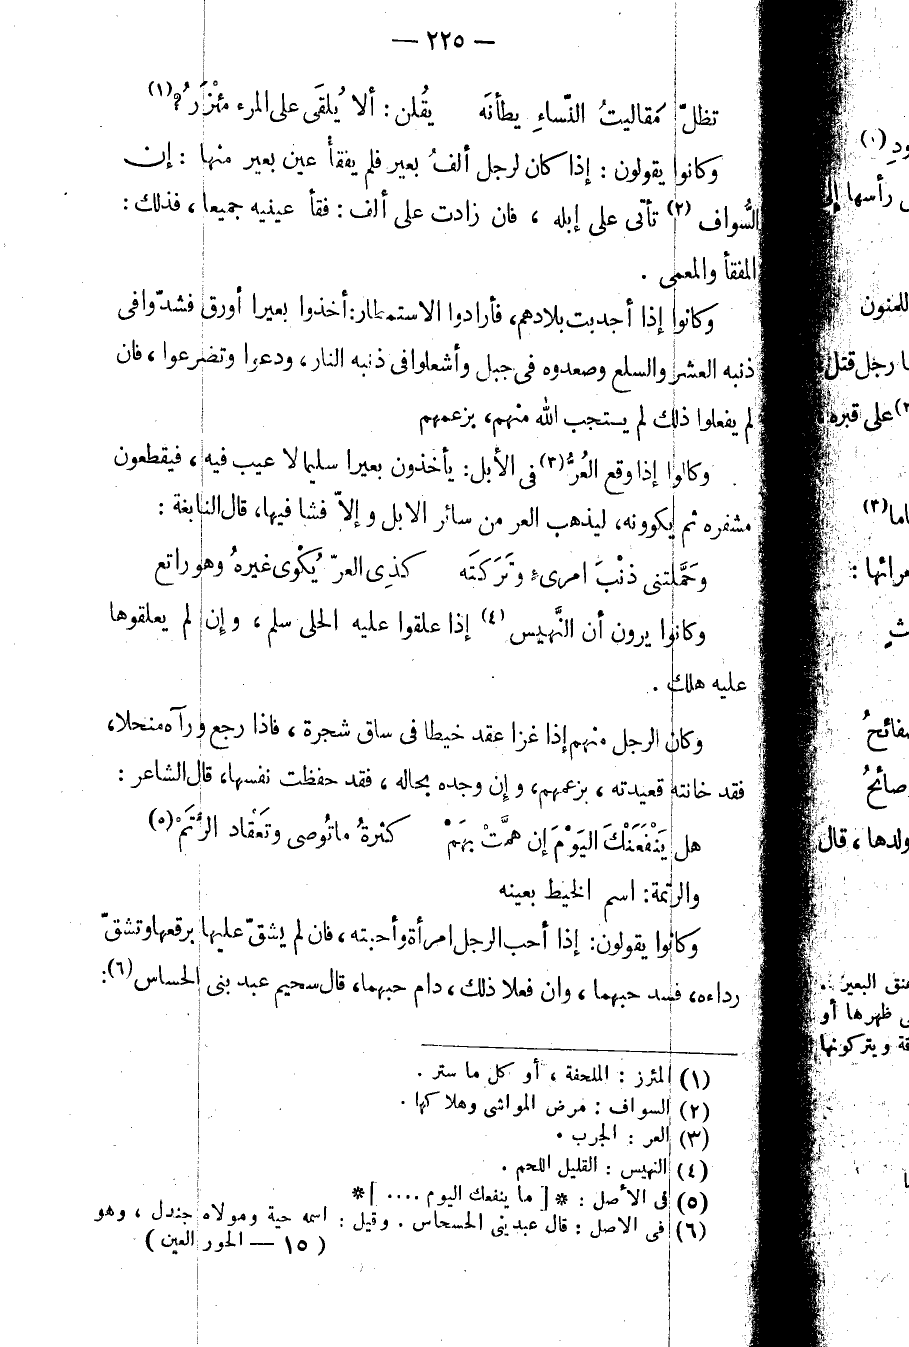 — ٢٢٥ —
تظلّ مَقاليتُ النّساءِ يطأنَه يقُلن: ألا يُلقَى على المرء مئْزَرُ؟(١)
وكانوا يقولون: إذا كان لرجل ألفُ بعير فلم يفقأ عين بعير منها: إن
السُّواف (٢) تأتى على إبله، فان زادت على ألف: فقأ عينيه جميعا، فذلك:
المفقأ والمعمى.
وكانوا إذا أجدبت بلادهم، فأرادوا الاستمطار: أخذوا بعيرا أورق فشدّوا فى
ذنبه العشر والسلع وصعدوه فى جبل وأشعلوا فى ذنبه النار، ودعوا وتضرعوا، فان
لم يفعلوا ذلك لم يستجب الله منهم، بزعمهم
وكانوا إذا وقع العُرُّ(٣) فى الأبل: يأخذون بعيرا سليما لا عيب فيه، فيقطعون
مشفره ثم يكوونه، ليذهب العر من سائر الابل و إلاّ فشا فيها، قال النابغة:
وحَمَّلتنى ذنْبَ امرىء وتَرَكتَه كذِى العرّ يُكْوى غيرهُ وهو راتع
وكانوا يرون أن النَّهيس (٤) إذا علقوا عليه الحلى سلم، و إن لم يعلقوها
عليه هلك.
وكان الرجل منهم إذا غزا عقد خيطا فى ساق شجرة، فاذا رجع ورآه منحلا،
فقد خانته قعيدته، بزعمهم، و إن وجده بحاله، فقد حفظت نفسها، قال الشاعر:
هل يَنْفَعَنْكَ اليَوْمَ إن همَّتْ بهَمْ كثرةُ ماتُوصى وتَعْقاد الرَّتَمْ(٥)
والرتمة: اسم الخيط بعينه
وكانوا يقولون: إذا أحب الرجل امرأة وأحبته، فان لم يشقّ عليها برقعها وتشقّ
رداءه، فسد حبهما، وان فعلا ذلك، دام حبهما، قال سحيم عبد بنى الحساس(٦):
(١) المئزر: الملحفة، أو كل ما ستر.
(٢) السواف: مرض المواشى وهلاكها.
(٣) العر: الجرب.
(٤) النهيس: القليل اللحم.
(٥) فى الأصل: * [ ما ينفعك اليوم .... ] *
(٦) فى الاصل: قال عبد بنى الحسحاس. وقيل: اسمه حية ومولاه جندل، وهو
( ١٥ — الحور العين )
ودِ(١)
رأسها إلى
للمنون
ا رجل قتل
على قبره
اما(٣)
مرائها:
ثٍ
صفائحُ
صائحُ
ولدها، قال
عنق البعير.
ى ظهرها أو
قة ويتركونها